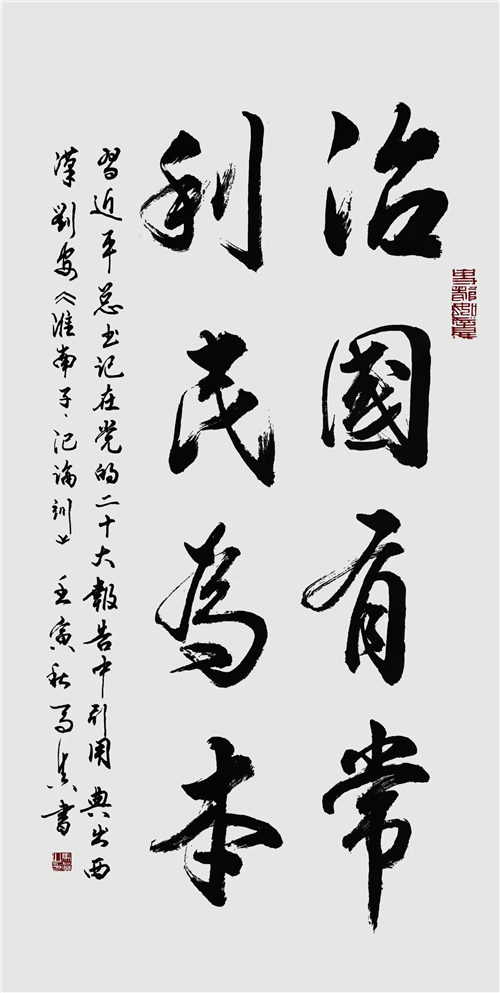 治國有常
利民為本
習近平总书记在党的二十大報告中引用典出西
漢劉安《淮南子·氾論訓》壬寅秋馬書